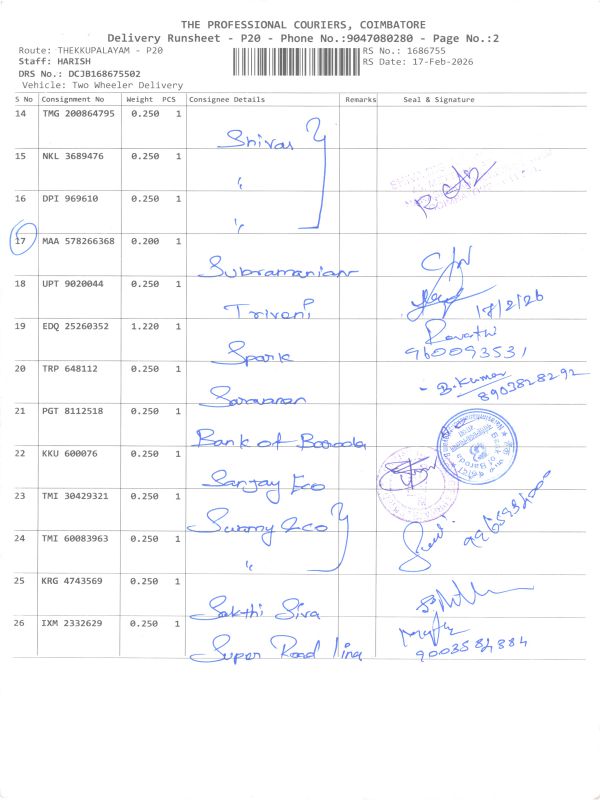 THE PROFESSIONAL COURIERS, COIMBATORE
Delivery Runsheet - P20 - Phone No.:9047080280 - Page No.:2
Route: THEKKUPALAYAM - P20 RS No.: 1686755
Staff: HARISH RS Date: 17-Feb-2026
DRS No.: DCJB168675502
Vehicle: Two Wheeler Delivery
S No Consignment No Weight PCS Consignee Details Remarks Seal & Signature
14 TMG 200864795 0.250 1 Shivas
15 NKL 3689476 0.250 1 "
16 DPI 969610 0.250 1 "
17 MAA 578266368 0.200 1 Subramanian
18 UPT 9020044 0.250 1 Triveni 17/2/26
19 EDQ 25260352 1.220 1 Spark Revathi
9600935531
20 TRP 648112 0.250 1 Saravanan B. Kumar
8903828292
21 PGT 8112518 0.250 1 Bank of Baroda
22 KKU 600076 0.250 1 Sanjay Eco
23 TMI 30429321 0.250 1 Swamy & co
24 TMI 60083963 0.250 1 "
25 KRG 4743569 0.250 1 Sakthi Siva
26 IXM 2332629 0.250 1 Super Road lina
9003584884